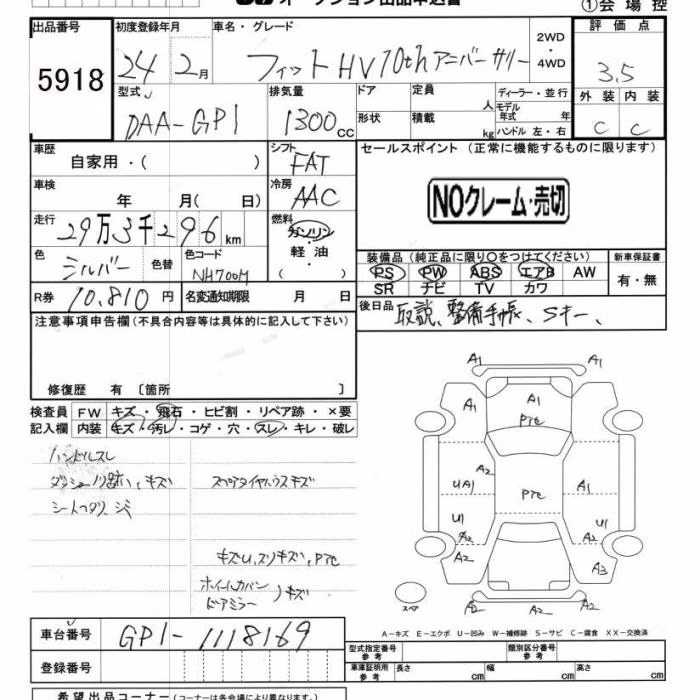 オークション出品申込書
①会 場 控
出品番号 初度登録年月 車名・グレード 2WD・4WD 評 価 点
5918 24年 2月 フィットHV 10th アニバーサリー 3.5
型式 排気量 ドア 定員 人 ディーラー・並行 外 装 内 装
DAA-GP1 1300cc 形状 積載 kg モデル年式 年 ハンドル 左・右 C C
車歴 自家用・( ) シフト FAT セールスポイント (正常に機能するものに限ります)
車検 年 月( 日) 冷房 AAC NOクレーム・売切
走行 29万3千296km 燃料 ガソリン・軽油・( )
色 シルバー 色替 色コード NH700M 装備品 (純正品に限り○をつけてください) 新車保証書
PS PW ABS エアB AW 有・無
SR ナビ TV カワ
R券 10,810円 名変通知期限 月 日 後日品 取説、整備手帳、Sキー、
注意事項申告欄 (不具合内容等は具体的に記入して下さい)
修復歴 有 [箇所 ]
検査員 FW キズ・飛石・ヒビ割・リペア跡・×要
記入欄 内装 キズ・汚レ・コゲ・穴・スレ・キレ・破レ
ハンドルスレ
ダッシュノリ跡、キズ スペアタイヤハウスキズ
シートヘタリ、シミ
キズU、スリキズ、Pτε
ホイールカバー
ドアミラー )キズ
A1 A1
A1 A1
Pτε
A2
UA1 Pτε A1
U1 U1
A2 A2
A2 A3
A2 A2
スペア
A-キズ E-エクボ U-凹み W-補修跡 S-サビ C-腐食 XX-交換済
車台番号 GP1-1118169
登録番号 型式指定番号 参考 類別区分番号 参考
車庫証明用 参考 長さ cm 幅 cm 高さ cm
希望出品コーナー (コーナーは各会場により異なります)